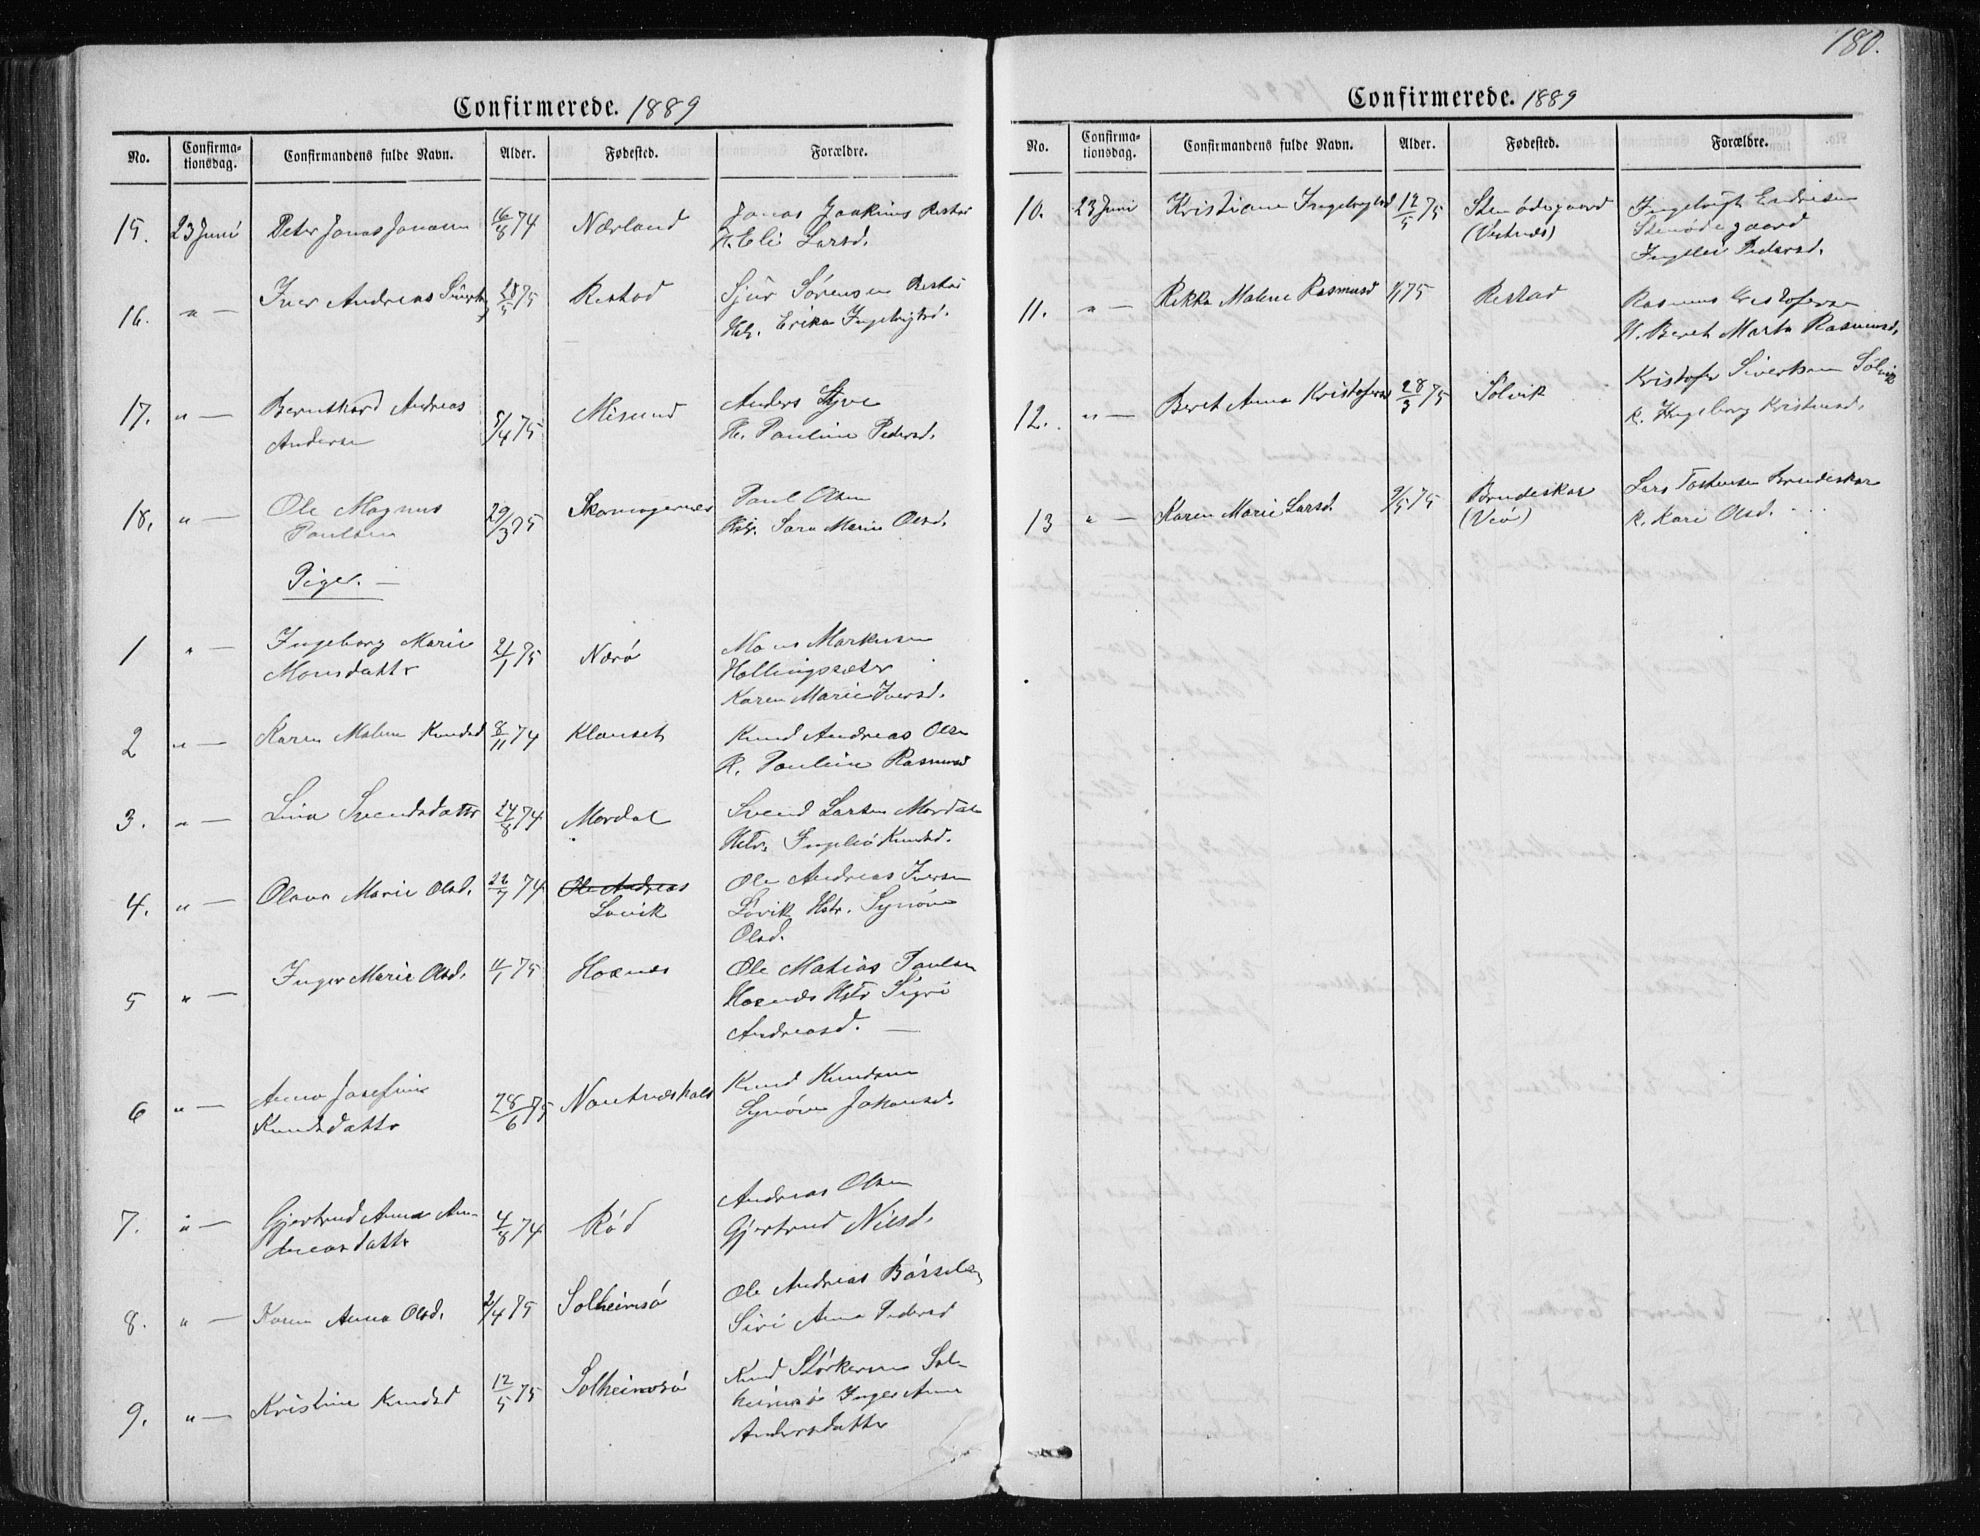 180.
Confirmerede. 1889
No. Confirma-tionsdag. Confirmandens fulde Navn. Alder. Fødested. Forældre.
15. 23 Juni Peter Jonas Jonasen 16/8 74 Nærland Jonas Joakims Restad
H. Eli Larsd.
16. " — Iver Andreas 5 75 Restad Sjur Sørensen Restad
Hstr. Erika Ingebrigtsd.
17. " — Bernthard Andreas 5/4 75 Misund Anders Styve
Andersen H. Pauline Pedersd.
18. " — Ole Magnus 29/3 75 Paul Olsen
Paulsen Hstr. Sara Marie Olsd.
Piger. —
1 " — Ingeborg Marie 21/1 75 Nærø Mons Markusen
Monsdattr Hollingsæter
Karen Marie Iversd.
2 " — Karen Malene Knudsd 8/11 74 Klauset Knud Andreas Olsen
K. Pauline Rasmusd
3. " — Lina Svendsdattr 24/8 74 Mordal Svend Larsen Mordal
Hstr. Knudsd.
4. " — Olava Marie Olsd. 22/7 74 Ole Andreas Ole Andreas Iversen
Løvik Løvik Hstr. Synøve
Olsd.
5 " — Inger Marie Olsd. 11/1 75 Hoxnes Ole Matias Paulsen
Hoxnæs Hstr Sigri
Andreasd. —
6 " — Anna Josefine 28/6 75 Nautneshals Knud Knudsen
Knudsdattr Synøve Johansd.
7. " — Gjertrud Anna An- 4/8 74 Rød Andreas Olsen
dreasdattr Gjertrud Nilsd.
8. " — Karen Anna Olsd. 2/4 75 Solheimsø Ole Andreas
Siri Anna Pedersd
9. " — Kristine Knudsd 12/5 75 Solheimsø Knud Størkersen Sol-
heimsø Inger Anne
Andersdattr
Confirmerede. 1889
No. Confirma-tionsdag. Confirmandens fulde Navn. Alder. Fødested. Forældre.
10. 23 Juni Kristiane Ingebrigtsd 12/5 75 Stenødegaard Ingebrigt Endresen
(Vestnæs) Stenødegaard
Pedersd.
11. " — Rikka Malene Rasmusd 1/1 75 Restad Rasmus Kristofersen
H. Beret Marta Rasmusd.
12. " — Beret Anna Kristofersd 28/3 75 Sølvik Kristofer Sivertsen Sølvik
K. Ingeborg Kristensd.
13 " — Karen Marie Larsd. 9/5 75 Brudeskar Lars Tostensen Brudeskar
(Veø) K. Kari Olsd.